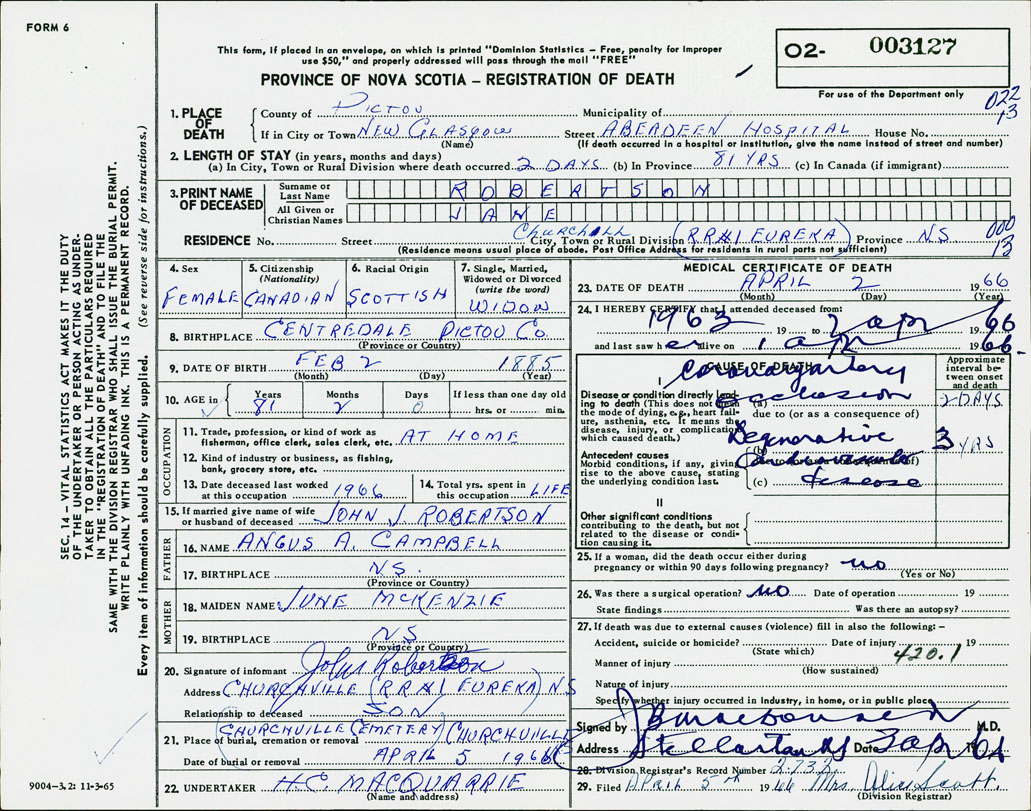 FORM 6
This form, if placed in an envelope, on which is printed "Dominion Statistics – Free, penalty for improper
use $50," and properly addressed will pass through the mail "FREE"
PROVINCE OF NOVA SCOTIA – REGISTRATION OF DEATH
O2- 003127
For use of the Department only
022
13
1. PLACE OF DEATH
County of PICTOU Municipality of
If in City or Town NEW GLASGOW Street ABERDEEN HOSPITAL House No.
(Name) (If death occurred in a hospital or institution, give the name instead of street and number)
2. LENGTH OF STAY (in years, months and days)
(a) In City, Town or Rural Division where death occurred 2 DAYS (b) In Province 81 YRS (c) In Canada (if immigrant)
3. PRINT NAME OF DECEASED
Surname or Last Name ROBERTSON
All Given or Christian Names JANE
RESIDENCE No. Street City, Town or Rural Division (RR#1 EUREKA) Province NS.
000
13
(Residence means usual place of abode. Post Office Address for residents in rural parts not sufficient)
4. Sex
FEMALE
5. Citizenship (Nationality)
CANADIAN
6. Racial Origin
SCOTTISH
7. Single, Married, Widowed or Divorced (write the word)
WIDOW
8. BIRTHPLACE CENTREDALE PICTOU Co.
(Province or Country)
9. DATE OF BIRTH FEB 2 1885
(Month) (Day) (Year)
10. AGE in Years 81 Months 2 Days 0 If less than one day old hrs. or min.
OCCUPATION
11. Trade, profession, or kind of work as
fisherman, office clerk, sales clerk, etc. AT HOME
12. Kind of industry or business, as fishing,
bank, grocery store, etc.
13. Date deceased last worked at this occupation 1966
14. Total yrs. spent in this occupation LIFE
15. If married give name of wife or husband of deceased JOHN J. ROBERTSON
FATHER
16. NAME ANGUS A. CAMPBELL
17. BIRTHPLACE N.S.
(Province or Country)
MOTHER
18. MAIDEN NAME JUNE MCKENZIE
19. BIRTHPLACE NS
(Province or Country)
20. Signature of informant John Robertson
Address CHURCHVILLE (RR#1 EUREKA) N S
Relationship to deceased SON
21. Place of burial, cremation or removal (CHURCHVILLE CEMETERY) CHURCHVILLE
Date of burial or removal APRIL 5 1966
22. UNDERTAKER H.C. MACQUARRIE
(Name and address)
MEDICAL CERTIFICATE OF DEATH
23. DATE OF DEATH APRIL 2 1966
(Month) (Day) (Year)
24. I HEREBY CERTIFY that I attended deceased from:
1963 19 to 2 apr 1966
and last saw her alive on 1 apr 1966
CAUSE OF DEATH
Approximate interval between onset and death
Disease or condition directly leading to death (This does not mean the mode of dying, e.g., heart failure, asthenia, etc. It means the disease, injury, or complication which caused death.)
(a) Coronary artery occlusion 2 DAYS
due to (or as a consequence of)
Antecedent causes
Morbid conditions, if any, giving rise to the above cause, stating the underlying condition last.
(b) Degenerative Cardiovascular 3 YRS
(c) disease
II
Other significant conditions
contributing to the death, but not related to the disease or condition causing it.
25. If a woman, did the death occur either during
pregnancy or within 90 days following pregnancy? no
(Yes or No)
26. Was there a surgical operation? no Date of operation 19
State findings Was there an autopsy?
27. If death was due to external causes (violence) fill in also the following: –
Accident, suicide or homicide? Date of injury 19
(State which) 420.1
Manner of injury
(How sustained)
Nature of injury
Specify whether injury occurred in industry, in home, or in public place
Signed by M.D.
Address Stellarton NS Date 3 apr
28. Division Registrar's Record Number
29. Filed APRIL 5th 1966 Mrs. Alice Scott.
(Division Registrar)
SEC. 14 – VITAL STATISTICS ACT MAKES IT THE DUTY
OF THE UNDERTAKER OR PERSON ACTING AS UNDERTAKER TO OBTAIN ALL THE PARTICULARS REQUIRED
IN THE "REGISTRATION OF DEATH" AND TO FILE THE
SAME WITH THE DIVISION REGISTRAR WHO SHALL ISSUE THE BURIAL PERMIT.
WRITE PLAINLY WITH UNFADING INK. THIS IS A PERMANENT RECORD.
Every item of information should be carefully supplied. (See reverse side for instructions.)
9004-3.2: 11-3-65